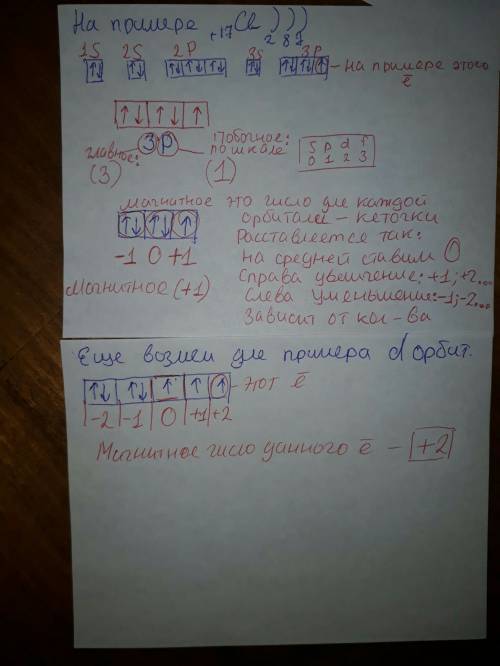 На примере +17Cl ) ) )
2 8 7
1S 2S 2P 3S 3P
↑↓ ↑↓ ↑↓ ↑↓ ↑↓ ↑↓ ↑↓ ↑↓ ↑ - на примере этого
ē
↑↓ ↑↓ ↑
главное: 3P побочное:
по шкале
(3) (1)
S p d f
0 1 2 3
магнитное это число для каждой
орбитали - клеточки
↑↓ ↑↓ ↑ Расставляется так:
-1 0 +1 на средней ставим 0
Магнитное (+1) Справа увеличение: +1; +2...
Слева уменьшение: -1; -2...
Зависит от кол-ва
Еще возмем для примера d орбит.
↑↓ ↑↓ ↑ ↑ ↑ - этот ē
-2 -1 0 +1 +2
Магнитное число данного ē - +2